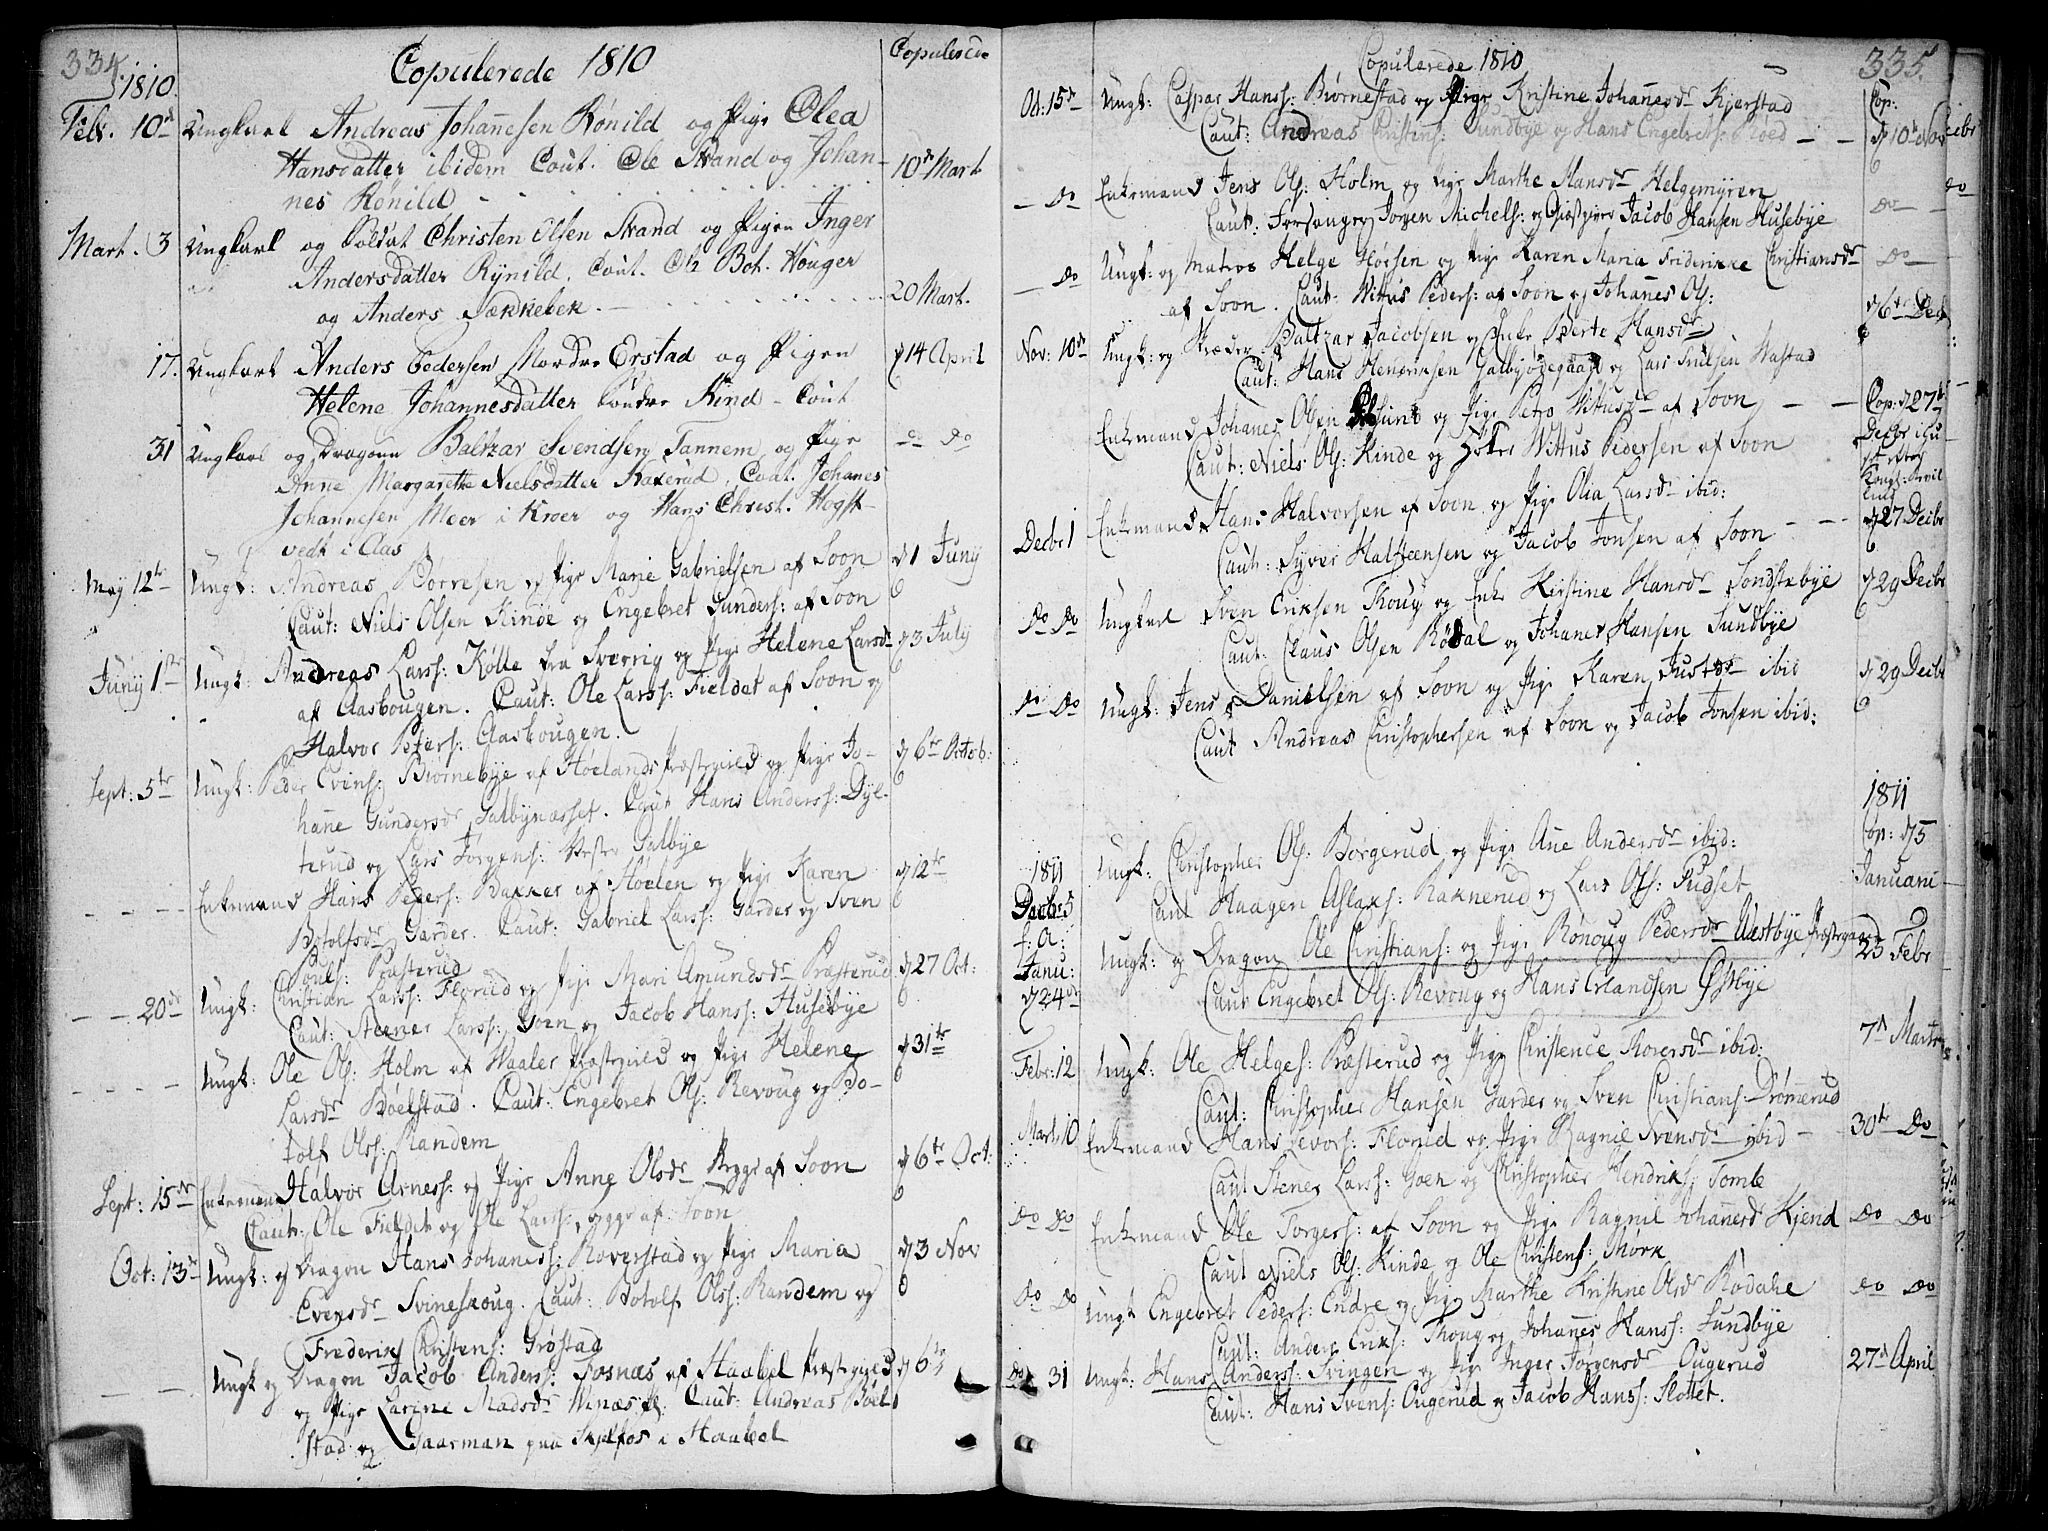 334.
1810.
Copulerede 1810
Copulerede
Febr. 10de Ungkarl Andreas Johannesen Rönild og Pige Olea
Hansdatter ibidem Caut. Ole Strand og Johan-
nes Rönild
10de Mart
Mart. 3 Ungkarl og Soldat Christen Olsen Strand og Pigen Inger
Andersdatter Rynild. Caut. Ole Bot. Houger
og Anders Sækkebek.
20 Mart.
17. Ungkarl Anders Pedersen Nordre Erstad og Pigen
Helene Johannesdatter Søndre Kind - Caut
d 14 April
31 Ungkarl og Dragoun Baltzar Svendsen Tannem og Pige
Anne Margarethe Nielsdatter Kaxerud. Caut. Johanes
Johannesen Meer i Kroer og Hans Christ. Hogst-
vedt i Aas
Do
May 12te Ungk: Andreas Børresen og Pige Marie Gabrielsen af Soon
Caut: Niels Olsen Kinde og Engebret Gunders: af Soon
d 1 Juny
Juny 1ste Ungk: Andreas Larss: Kölle fra Sverrig og Pige Helene Larsdr
af Aasbougen. Caut: Ole Larss: Fieldet af Soon og
Halvor Peters: Aasbougen.
d 3 July
Sept: 5te Ungk: Peder Evens: Biørnebye af Høelands Præstegield og Pige Jo-
hanne Gundersdr Galbynæsset. Caut Hans Anderss: Dyl-
terud og Lars Jørgens: Vestre Galbye
d 6te Octob:
Enkemand Hans Peders: Bakker af Høelen og Pige Karen
Botolfsdr Garder. Caut: Gabriel Larss: Garder og Sven
Pouls: Præsterud
d 12te
20de Ungk: Christian Larss: Florud og Pige Mari Amundsdr Præsterud
Caut: Steener Larss: Goen og Jacob Hanss: Husebye
d 27 Oct:
Ungk: Ole Ols: Holm af Waaler Præstegield og Pige Helene
Larsdr Bøelstad. Caut: Engebret Ols: Revoug og Bo-
tolf Olss: Randem
d 31te
Sept: 15de Enkemand Halvor Arness: og Pige Anne Olsdr Brygge af Soon
Caut: Ole Fieldet og Ole Larss: Brygge af Soon
d 6te Oct:
Oct: 13de Ungk: og Dragon Hans Johaness: Roverstad og Pige Maria
Evensdr Svineskoug. Caut: Botolf Olss: Randem og
Frederik Christens: Grøstad
d 3 Nov
Ungk og Dragon Jacob Anders: Fosnæs af Haabøl Præstegield
og Pige Larine Madsdr Wenæs. Caut: Andreas Bøel-
stad og Gaarman paa Skjelfos i Haabøl
d 6te
335.
Copulerede 1810
Cop:
Oct: 15de Ungk: Caspar Hanss: Biørnestad og Pige Kristine Johanesdr Kjerstad
Caut: Andreas Christins: Sundbye og Hans Engebrets: Røed
d 10de Nov
Do Enkemand Jens Ols: Holm og Pige Marthe Hansdr Helgemyren
Caut: Forsanger Jørgen Michels: og Giestgiver Jacob Hansen Husebye
Do
Do Ungk: og Matros Helge Høisen og Pige Karen Maria Friderikke Christiansdr
af Soon. Caut: Wittus Peders: af Soon og Johanes Ols:
Do
Nov: 10de Ungk: og Skræder Baltzar Jacobsen og Enke Berte Hansdr
Caut: Hans Hendriksen Galbyødegaard og Lars Trulsen Wastad
d 6te Dec
Enkemand Johanes Olsen og Pige Petro Wittusdr af Soon
Caut: Niels Ols: Kinde og Høker Wittus Pedersen af Soon
Cop: d 27de
Decbr i Hu-
set efter
Kongl: Bevil
ling
Decbr 1 Enkemand Hans Halvorsen af Soon og Pige Olia Larsdr ibid:
Caut: Syver Halstensen og Jacob Jonsen af Soon
d 27 Decbr
Do Do Ungkarl Sven Eriksen Thoug og Enke Kirstine Hansdr Sondstebye
Caut: Claus Olsen Rödal og Johanes Hansen Sundbye
d 29 Decbr
Do Do Ungk: Jens Danielsen af Soon og Pige Karen Justdr ibid
Caut Andreas Christophersen af Soon og Jacob Jonsen ibid:
d 29 Decbr
1811
Cop: d 5
Januari
1811
Decbr 5
f: A:
Ungk: Christopher Ols: Borgerud og Pige Ane Andersdr ibid:
Caut Haagen Aslaks: Raknerud og Lars Ols: Pudset
Janu:
d 24de
Ungk: og Dragon Ole Christians: og Pige Rönoug Pedersdr Westbye Præstegaard
Caut Engebret Ols: Revoug og Hans Erlandsen Østbye
23 Febr
Febr: 12 Ungk: Ole Helges: Præsterud og Pige Christence Thoresdr ibid:
Caut: Christopher Hansen Garder og Sven Christians: Drømmerud
7de Marts
Mart: 10 Enkemand Hans Sevors: Florud og Pige Ragnil Svensdr ibid
Caut Stener Larss: Goen og Christopher Hendriks: Tomle
30te Do
Do Do Enkemand Ole Torgers: af Soon og Pige Ragnil Johanesdr Kjend
Caut Niels Ols: Kinde og Ole Christens: Mørk
Do Do
Do Do Ungk Engebret Peders: Endre og Pige Marthe Kristine Olsdr Rødahe
Caut: Anders Eriks: Thoug og Johannes Hanss: Sundbye
Do Do
Do 31 Ungk: Hans Anderss: Svingen og Pige Inger Jørgensdr Ougerud
Caut: Hans Svens: Ougerud og Jacob Hanss: Slottet.
27de April